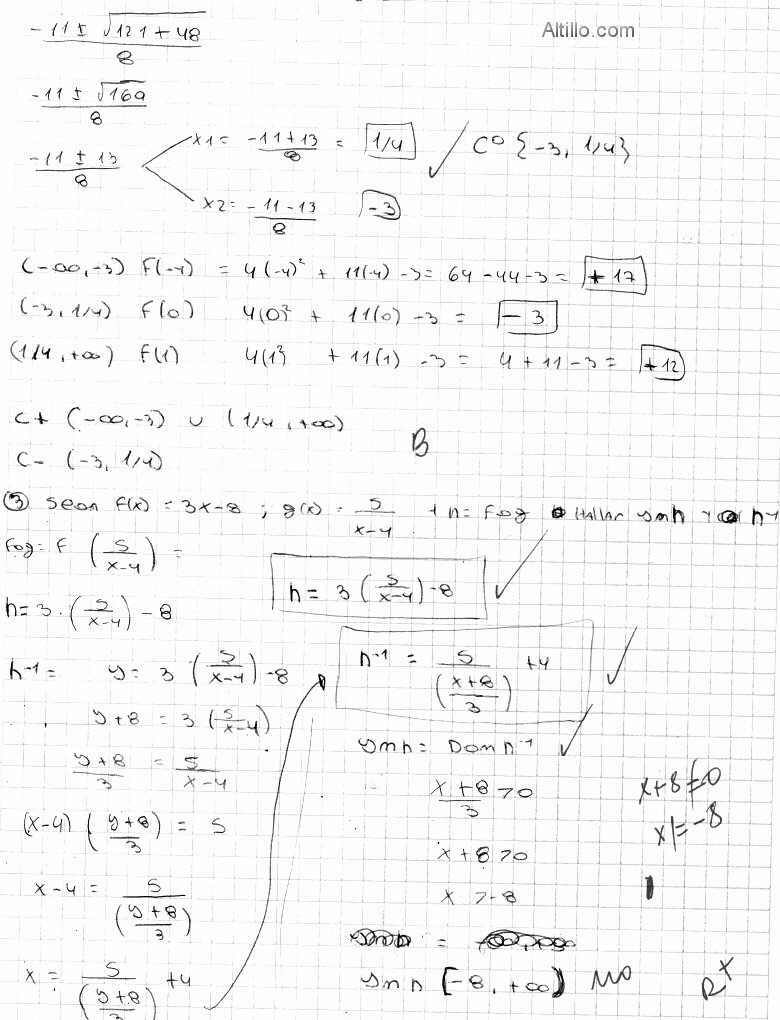 Altillo.com
-11 ± √121 + 48 / 8
-11 ± √169 / 8
-11 ± 13 / 8
x1 = -11+13 / 8 = 1/4
x2 = -11-13 / 8 -3
C⁰ {-3, 1/4}
(-∞,-3) F(-4) = 4(-4)² + 11(-4) -3 = 64 -44 -3 = +17
(-3, 1/4) F(0) 4(0)² + 11(0) -3 = -3
(1/4, +∞) F(1) 4(1)² + 11(1) -3 = 4 + 11 -3 = +12
C+ (-∞,-3) ∪ (1/4, +∞)
B
C- (-3, 1/4)
③ Sean F(x) = 3x-8 ; g(x) = 5 / x-4 h = Fog Hallar Imh y h-1
Fog: F (5 / x-4) =
h = 3 (5 / x-4) -8
h = 3 · (5 / x-4) - 8
h-1 = y = 3 (5 / x-4) -8
h-1 = 5 / (x+8 / 3) +4
y+8 = 3 (5 / x-4)
Imh = Dom h-1
y+8 / 3 = 5 / x-4
x+8 / 3 > 0
x+8 ≠ 0
x ≠ -8
(x-4) (y+8 / 3) = 5
x+8 > 0
x-4 = 5 / (y+8 / 3)
x > -8
=
x = 5 / (y+8 / 3) +4
Im h [-8, +∞) NO
R+